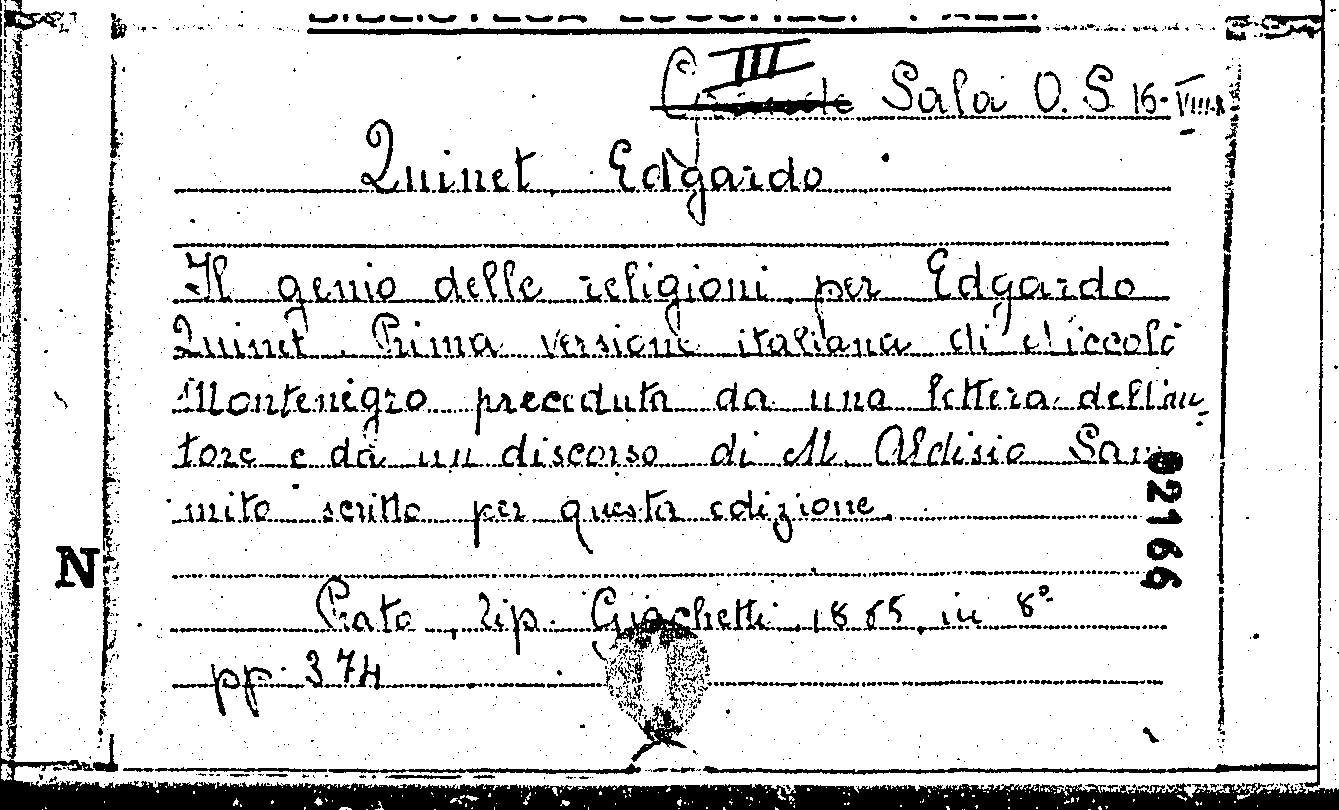 BIBLIOTECA LUCCHESI - PALLI
III
Grande Sala O. S. 16-VIII.
Quinet Edgardo
Il genio delle religioni per Edgardo
Quinet. Prima versione italiana di Niccolò
Montenegro preceduta da una lettera dell'au-
tore e da un discorso di M. Aldisio Sam
mito scritto per questa edizione.
02166
N
Prato, Tip. Giachetti, 1865, in 8°
pp. 374